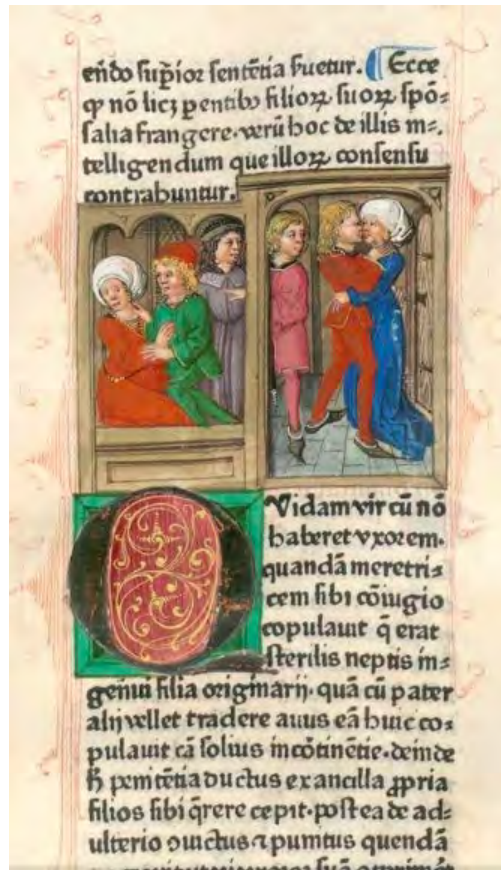 endo supior sententia fuetur. Ecce
qp nō licz pentibꝰ filioꝝ suoꝝ spō=
salia frangere. verū hoc de illis in=
telligendum que illoꝝ consensu
contrahuntur.
Quidam vir cū nō
haberet vxorem.
quandā meretri=
cem sibi cōiugio
copulauit q̄ erat
sterilis neptis in=
genui filia originarij. quā cū pater
alij vellet tradere auus eā huic co=
pulauit cā solius incōtinētie. deinde
h̄ penitētia ductus ex ancilla ꝓpria
filios sibi q̄rere cepit. postea de ad=
ulterio ↄuictus ⁊ punitus quendā